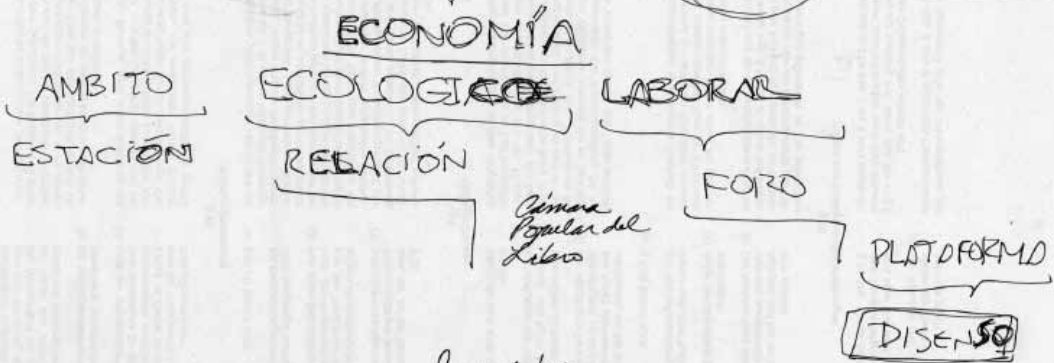 ECONOMÍA
AMBITO ECOLOGICO LABORAL
ESTACIÓN RELACIÓN FORO
Cámara
Popular del
Libro
PLATAFORMA
DISENSO